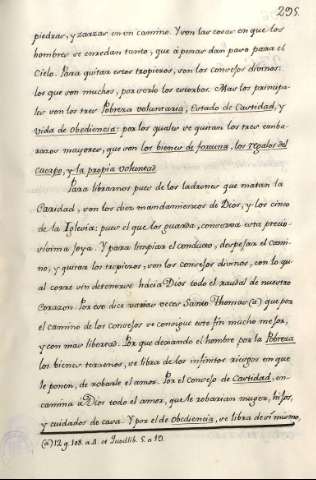 295.
piedras, y zarzas en un camino. Y son las cosas en que los
hombres se enredan tanto, que à penas dan paso para el
Cielo. Para quitar estos tropiezos, son los consejos divinos:
los que son muchos, por serlo los estorbos. Mas los principa-
les son los tres Pobreza voluntaria, Estado de Castidad, y
Vida de Obediencia: por los quales se quitan los tres emba-
razos mayores, que son los bienes de fortuna, los regalos del
Cuerpo, y la propia voluntad.
Para librarnos pues de los ladrones que matan la
Caridad, son los diez mandammientos de Dios, y los cinco
de la Iglesia: pues el que los guarda, conserva esta precio-
sissima joya. Y para limpiar el conducto, despejar el cami-
no, y quitar los tropiezos, son los consejos divinos, con lo qu
al corre sin detenerse hácia Dios todo el raudal de nuestro
Corazon. Por eso dice varias veces Santo Thomas (a) que por
el camino de los consejos se consigue este fin mucho mejor,
y con mas libertad. Por que dexando el hombre por la Pobreza
los bienes terrenos, se libra de los infinitos riesgos en que
le ponen, de robarle el amor. Por el consejo de Castidad, en-
camina a Dios todo el amor, que le robarian muger, hijos,
y cuidados de casa. Y por el de Obediencia, se libra de sí mismo,
(a) 1. 2. q. 108. a. 4. et Quodlib. 5. a 19.